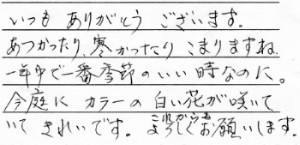 いつも ありがとう ございます。
あつかったり、寒かったり こまりますね。
一年中で一番季節のいい時なのに。
今庭に カラーの 白い花が咲いて
いて きれいです。これからも
よろしくお願いします。